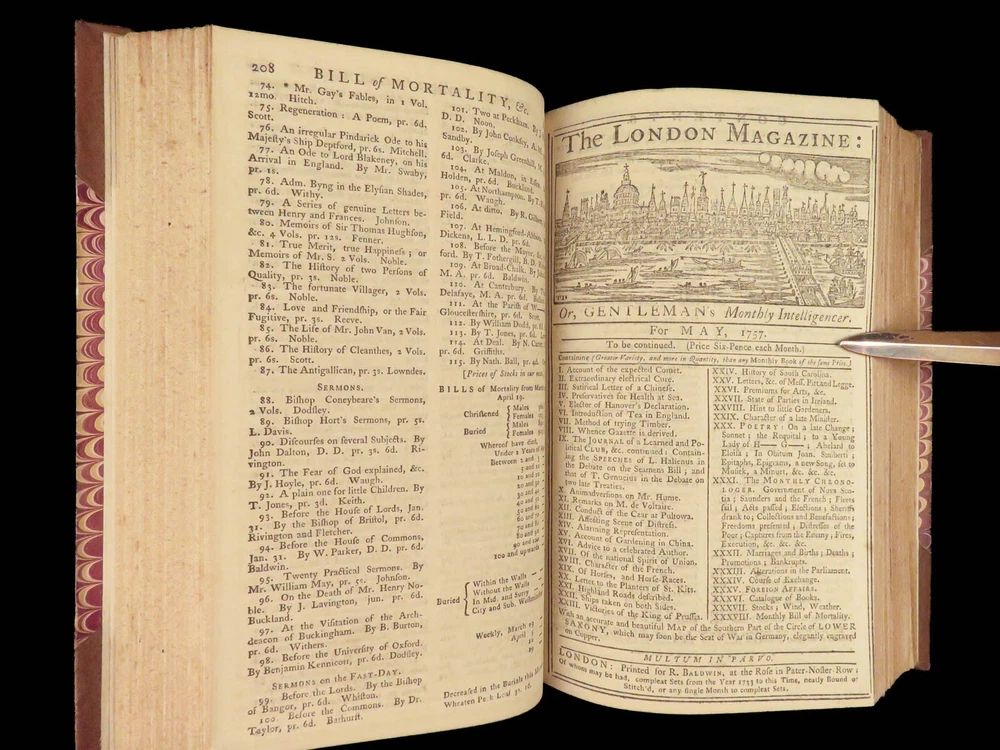 208
BILL of MORTALITY, &c.
74. * Mr. Gay's Fables, in 1 Vol.
12mo. Hitch.
75. Regeneration : A Poem, pr. 6d.
Scott.
76. An irregular Pindarick Ode to his
Majesty's Ship Deptford, pr. 6s. Mitchell.
77. An Ode to Lord Blakeney, on his
Arrival in England. By Mr. Swaby,
pr. 1s.
78. Adm. Byng in the Elysian Shades,
pr. 6d. Withy.
79. A Series of genuine Letters be-
tween Henry and Frances. Johnson.
80. Memoirs of Sir Thomas Hughson,
&c. 4 Vols. pr. 12s. Fenner.
81. True Merit, true Happiness ; or
Memoirs of Mr. S. 2 Vols. Noble.
82. The History of two Persons of
Quality, pr. 3s. Noble.
83. The fortunate Villager, 2 Vols.
pr. 6s. Noble.
84. Love and Friendship, or the Fair
Fugitive, pr. 3s. Reeve.
85. The Life of Mr. John Van, 2 Vols.
pr. 6s. Noble.
86. The History of Cleanthes, 2 Vols.
pr. 6s. Scott.
87. The Antigallican, pr. 3s. Lowndes.
SERMONS.
88. Bishop Coneybeare's Sermons,
2 Vols. Dodsley.
89. Bishop Hort's Sermons, pr. 5s.
L. Davis.
90. Discourses on several Subjects. By
John Dalton, D. D. pr. 3s. 6d. Ri-
vington.
91. The Fear of God explained, &c.
By J. Hoyle, pr. 6d. Waugh.
92. A plain one for little Children. By
T. Jones, pr. 3d. Keith.
93. Before the House of Lords, Jan.
31. By the Bishop of Bristol, pr. 6d.
Rivington and Fletcher.
94. Before the House of Commons,
Jan. 31. By W. Parker, D. D. pr. 6d.
Baldwin.
95. Twenty Practical Sermons. By
Mr. William May, pr. 5s. Johnson.
96. On the Death of Mr. Henry No-
ble. By J. Lavington, jun. pr. 6d.
Buckland.
97. At the Visitation of the Arch-
deacon of Buckingham. By B. Burton,
pr. 6d. Withers.
98. Before the University of Oxford.
By Benjamin Kennicott, pr. 6d. Dodsley.
SERMONS on the FAST-DAY.
99. Before the Lords. By the Bishop
of Bangor, pr. 6d. Whiston.
100. Before the Commons. By Dr.
Taylor, pr. 6d. Bathurst.
101. Two at Peckham. By
D. D. Noon.
102. By John Cooksey, A. M.
Sandby.
103. By Joseph Greenhill,
6d. Clarke.
104. At Maldon, in Essex.
Holden, pr. 6d. Buckland.
105. At Northampton. By
pr. 6d. Waugh.
106. At ditto. By R. Gilbert
Field.
107. At Hemingford-Abbots,
Dickens, L. L. D. pr. 6d.
108. Before the Mayor,
ford. By T. Fothergill, S.
109. At Broad-Chalk. By
M. A. pr. 6d. Baldwin.
110. At Canterbury. By
Delafaye, M. A. pr. 6d.
111. At the Parish of
Gloucestershire, pr. 6d.
112. By William Dodd, pr. 6d.
113. By T. Jones, pr. 6d.
114. At Deal. By N. Carter
pr. 6d. Griffiths.
115. By Nath. Ball, pr. 4d.
[Prices of Stocks in our next.
BILLS of Mortality from March
April 19.
Christened { Males
Females
Buried { Males
Females
Whereof have died,
Under 2 Years of
Between 2 and 5
5 and 10
10 and 20
20 and 30
30 and 40
40 and 50
50 and 60
60 and 70
70 and 80
80 and 90
90 and 100
100 and upwards
Buried { Within the Walls
Without the Walls
In Mid. and Surry
City and Sub.
Weekly, March 29
April 5
12
19
Decreased in the Burials this
Wheaten Peck Loaf 3s. 1d.
The LONDON MAGAZINE:
Or, GENTLEMAN's Monthly Intelligencer.
For MAY, 1757.
To be continued. (Price Six-Pence each Month.)
Containing (Greater Variety, and more in Quantity, than any Monthly Book of the same Price.)
I. Account of the expected Comet.
II. Extraordinary electrical Cure.
III. Satirical Letter of a Chinese.
IV. Preservatives for Health at Sea.
V. Elector of Hanover's Declaration.
VI. Introduction of Tea in England.
VII. Method of trying Timber.
VIII. Whence Gazette is derived.
IX. The JOURNAL of a Learned and Po-
litical CLUB, &c. continued : Contain-
ing the SPEECHES of L. Halienus in
the Debate on the Seamens Bill ; and
that of T. Genucius in the Debate on
two late Treaties.
X. Animadversions on Mr. Hume.
XI. Remarks on M. de Voltaire.
XII. Conduct of the Czar at Pultowa.
XIII. Affecting Scene of Distress.
XIV. Alarming Representation.
XV. Account of Gardening in China.
XVI. Advice to a celebrated Author.
XVII. Of the national Spirit of Union.
XVIII. Character of the French.
XIX. Of Horses, and Horse-Races.
XX. Letter to the Planters of St. Kits.
XXI. Highland Roads described.
XXII. Ships taken on both Sides.
XXIII. Victories of the King of Prussia.
XXIV. History of South Carolina.
XXV. Letters, &c. of Mess. Pitt and Legge.
XXVI. Premiums for Arts, &c.
XXVII. State of Parties in Ireland.
XXVIII. Hint to little Gardeners.
XXIX. Character of a late Minister.
XXX. POETRY : On a late Change ;
Sonnet ; the Requital ; to a Young
Lady of H—— G—— ; Abelard to
Eloisa ; In Obitum Joan. Smiberti ;
Epitaphs, Epigrams, a new Song, set to
Musick, a Minuet, &c. &c. &c.
XXXI. The MONTHLY CHRONO-
LOGER. Government of Nova Sco-
tia ; Saunders and the French ; Fleets
sail ; Acts passed ; Elections ; Sheriffs
drank to ; Collections and Benefactions ;
Freedoms presented ; Distresses of the
Poor ; Captures from the Enemy ; Fires,
Execution, &c. &c. &c.
XXXII. Marriages and Births ; Deaths ;
Promotions ; Bankrupts.
XXXIII. Alterations in the Parliament.
XXXIV. Course of Exchange.
XXXV. FOREIGN AFFAIRS.
XXXVI. Catalogue of Books.
XXXVII. Stocks ; Wind, Weather.
XXXVIII. Monthly Bill of Mortality.
With an accurate and beautiful MAP of the Southern Part of the Circle of LOWER
SAXONY, which may soon be the Seat of War in Germany, elegantly engraved
on Copper.
MULTUM IN PARVO.
LONDON: Printed for R. BALDWIN, at the Rose in Pater-Noster-Row ;
Of whom may be had, compleat Sets from the Year 1733 to this Time, neatly Bound or
Stitch'd, or any single Month to compleat Sets.